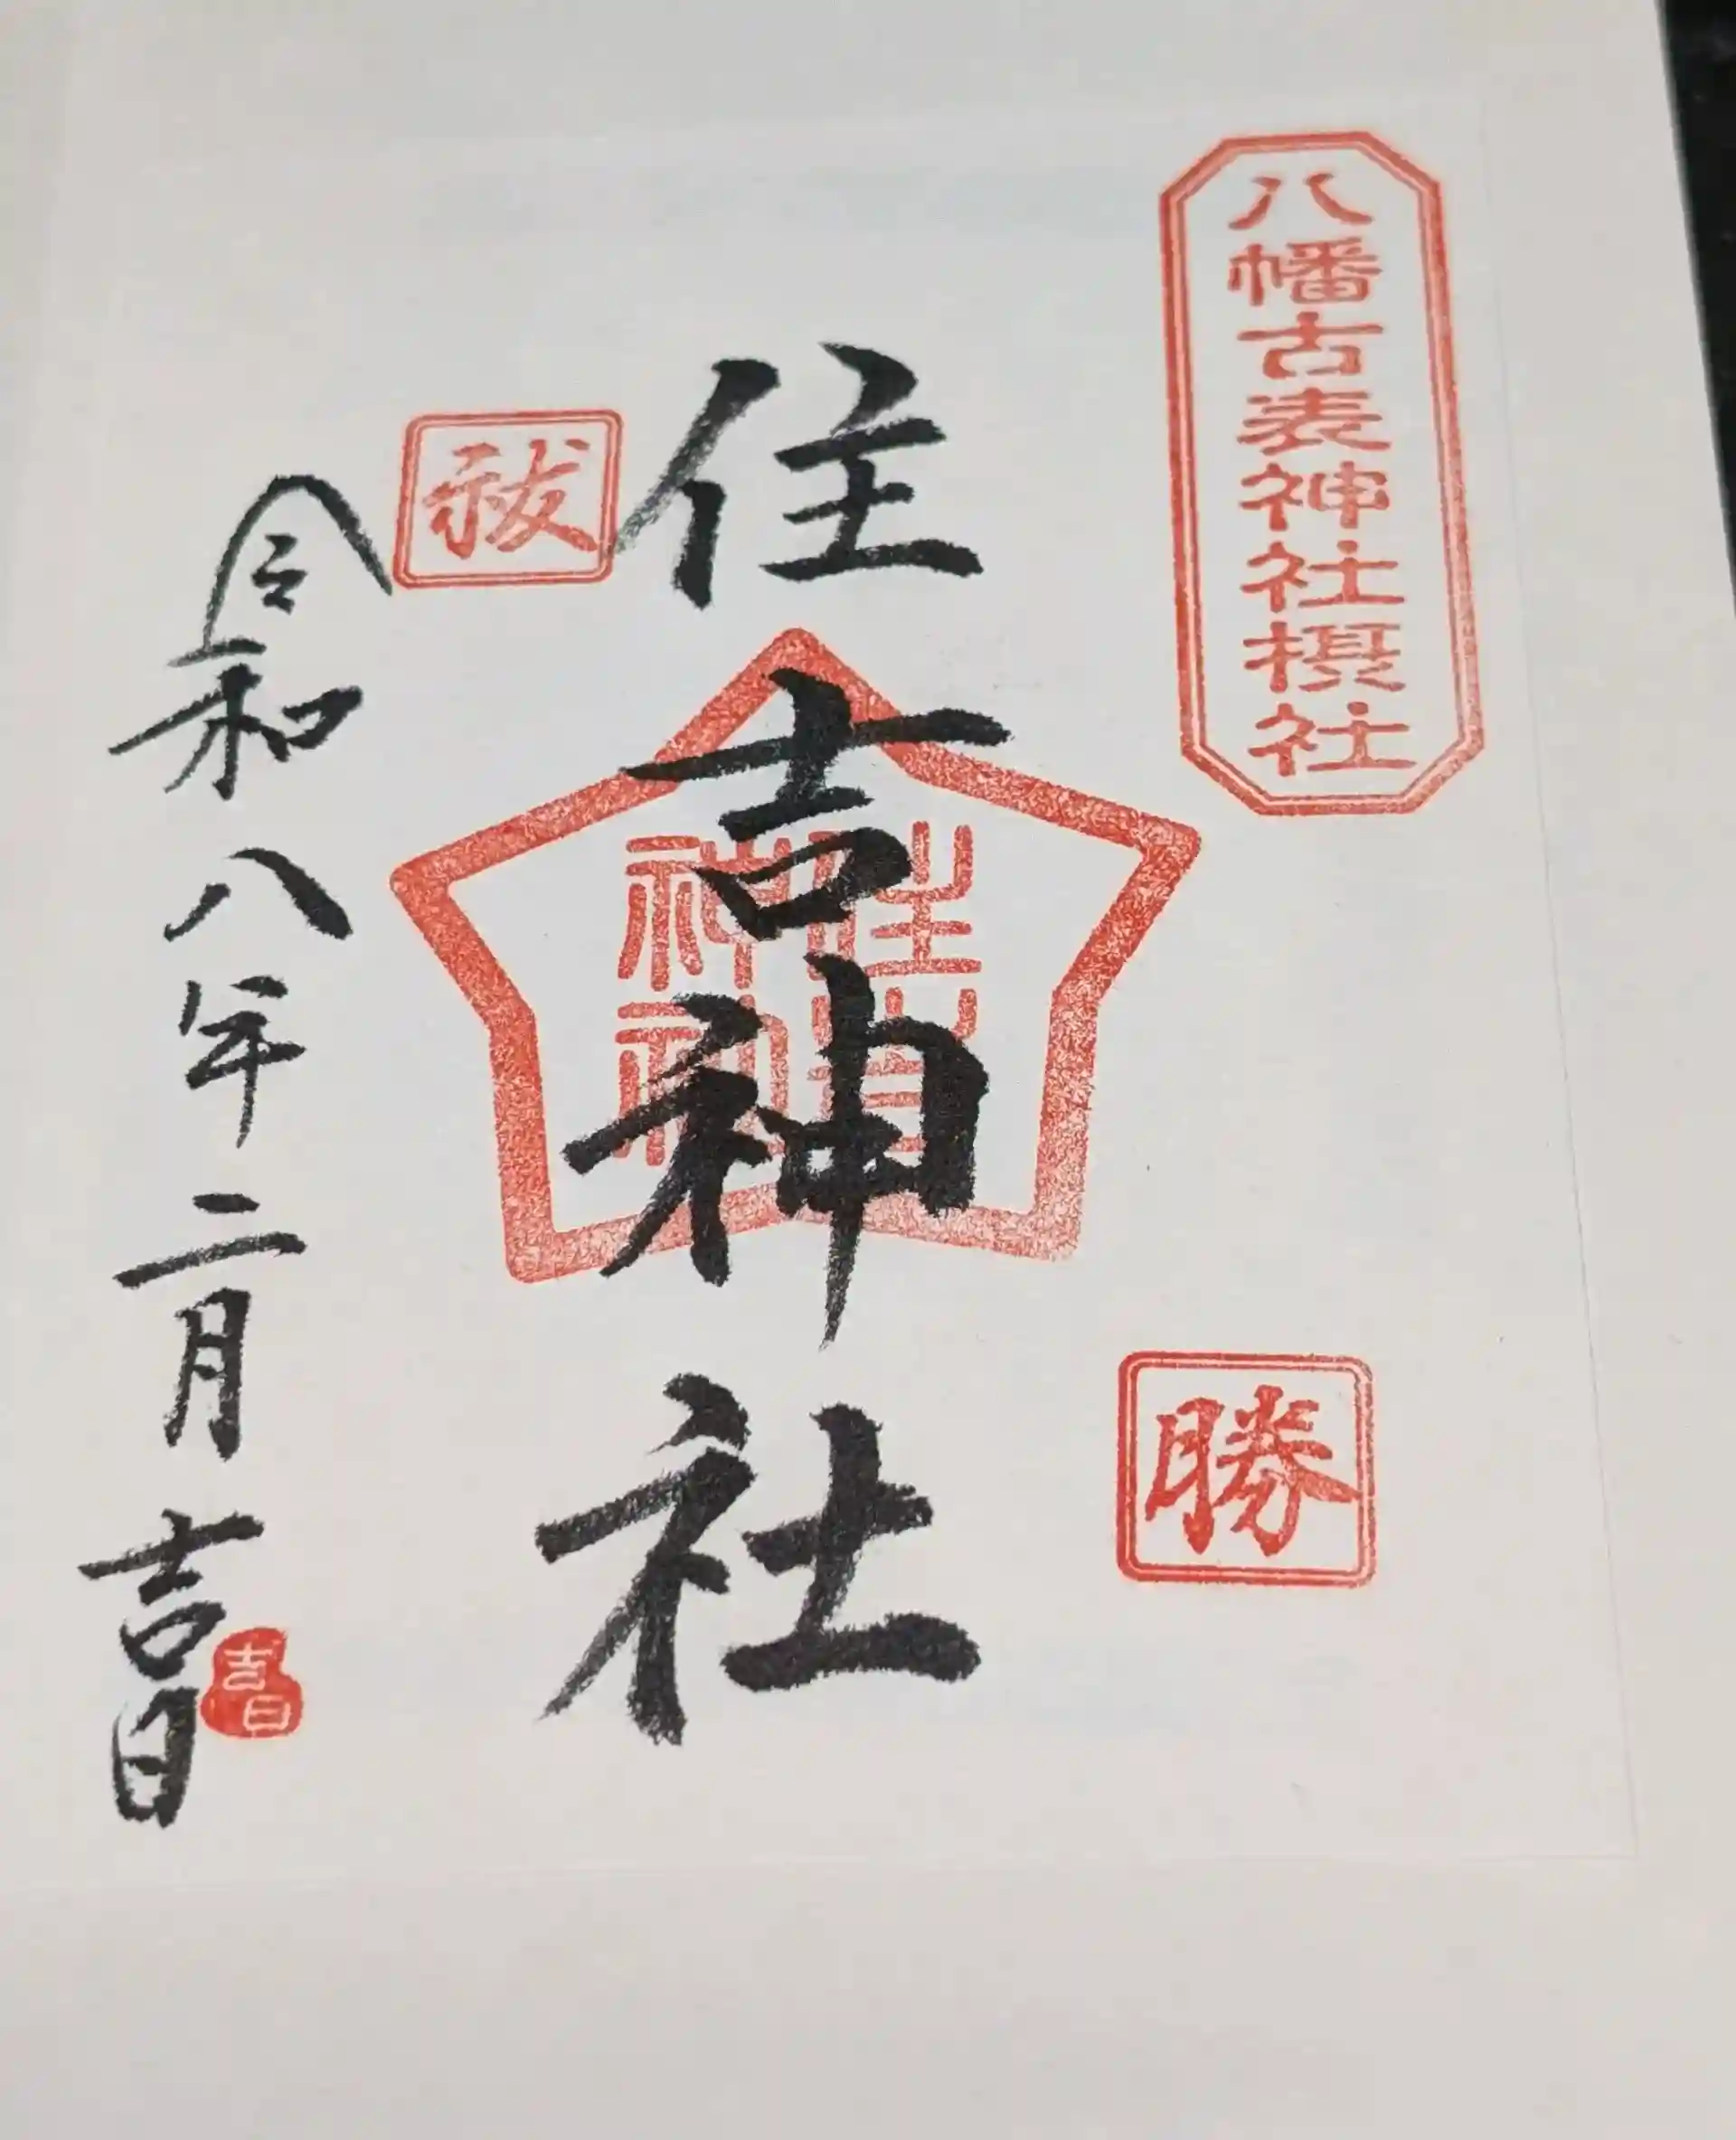 八幡古表神社摂社
勝
住吉神社
住吉
神社
祓
令和八年二月吉日
吉日